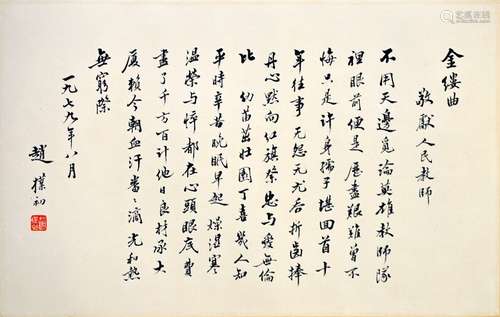 金缕曲
敬献人民教师
不用天邊覓論英雄教师隊
裡眼前便是歷盡艱難曾不
悔只是许身孺子堪回首十
年往事无怨无尤吞折齒捧
丹心默向红旗祭忠与愛無倫
比 幼苗茁壯園丁喜幾人知
平時辛苦晚眠早起燥濕寒
温榮与悴都在心頭眼底費
盡了千方百计他日良材承大
廈賴今朝血汗番〻滴光和熱
無窮際
一九七九年八月
趙樸初